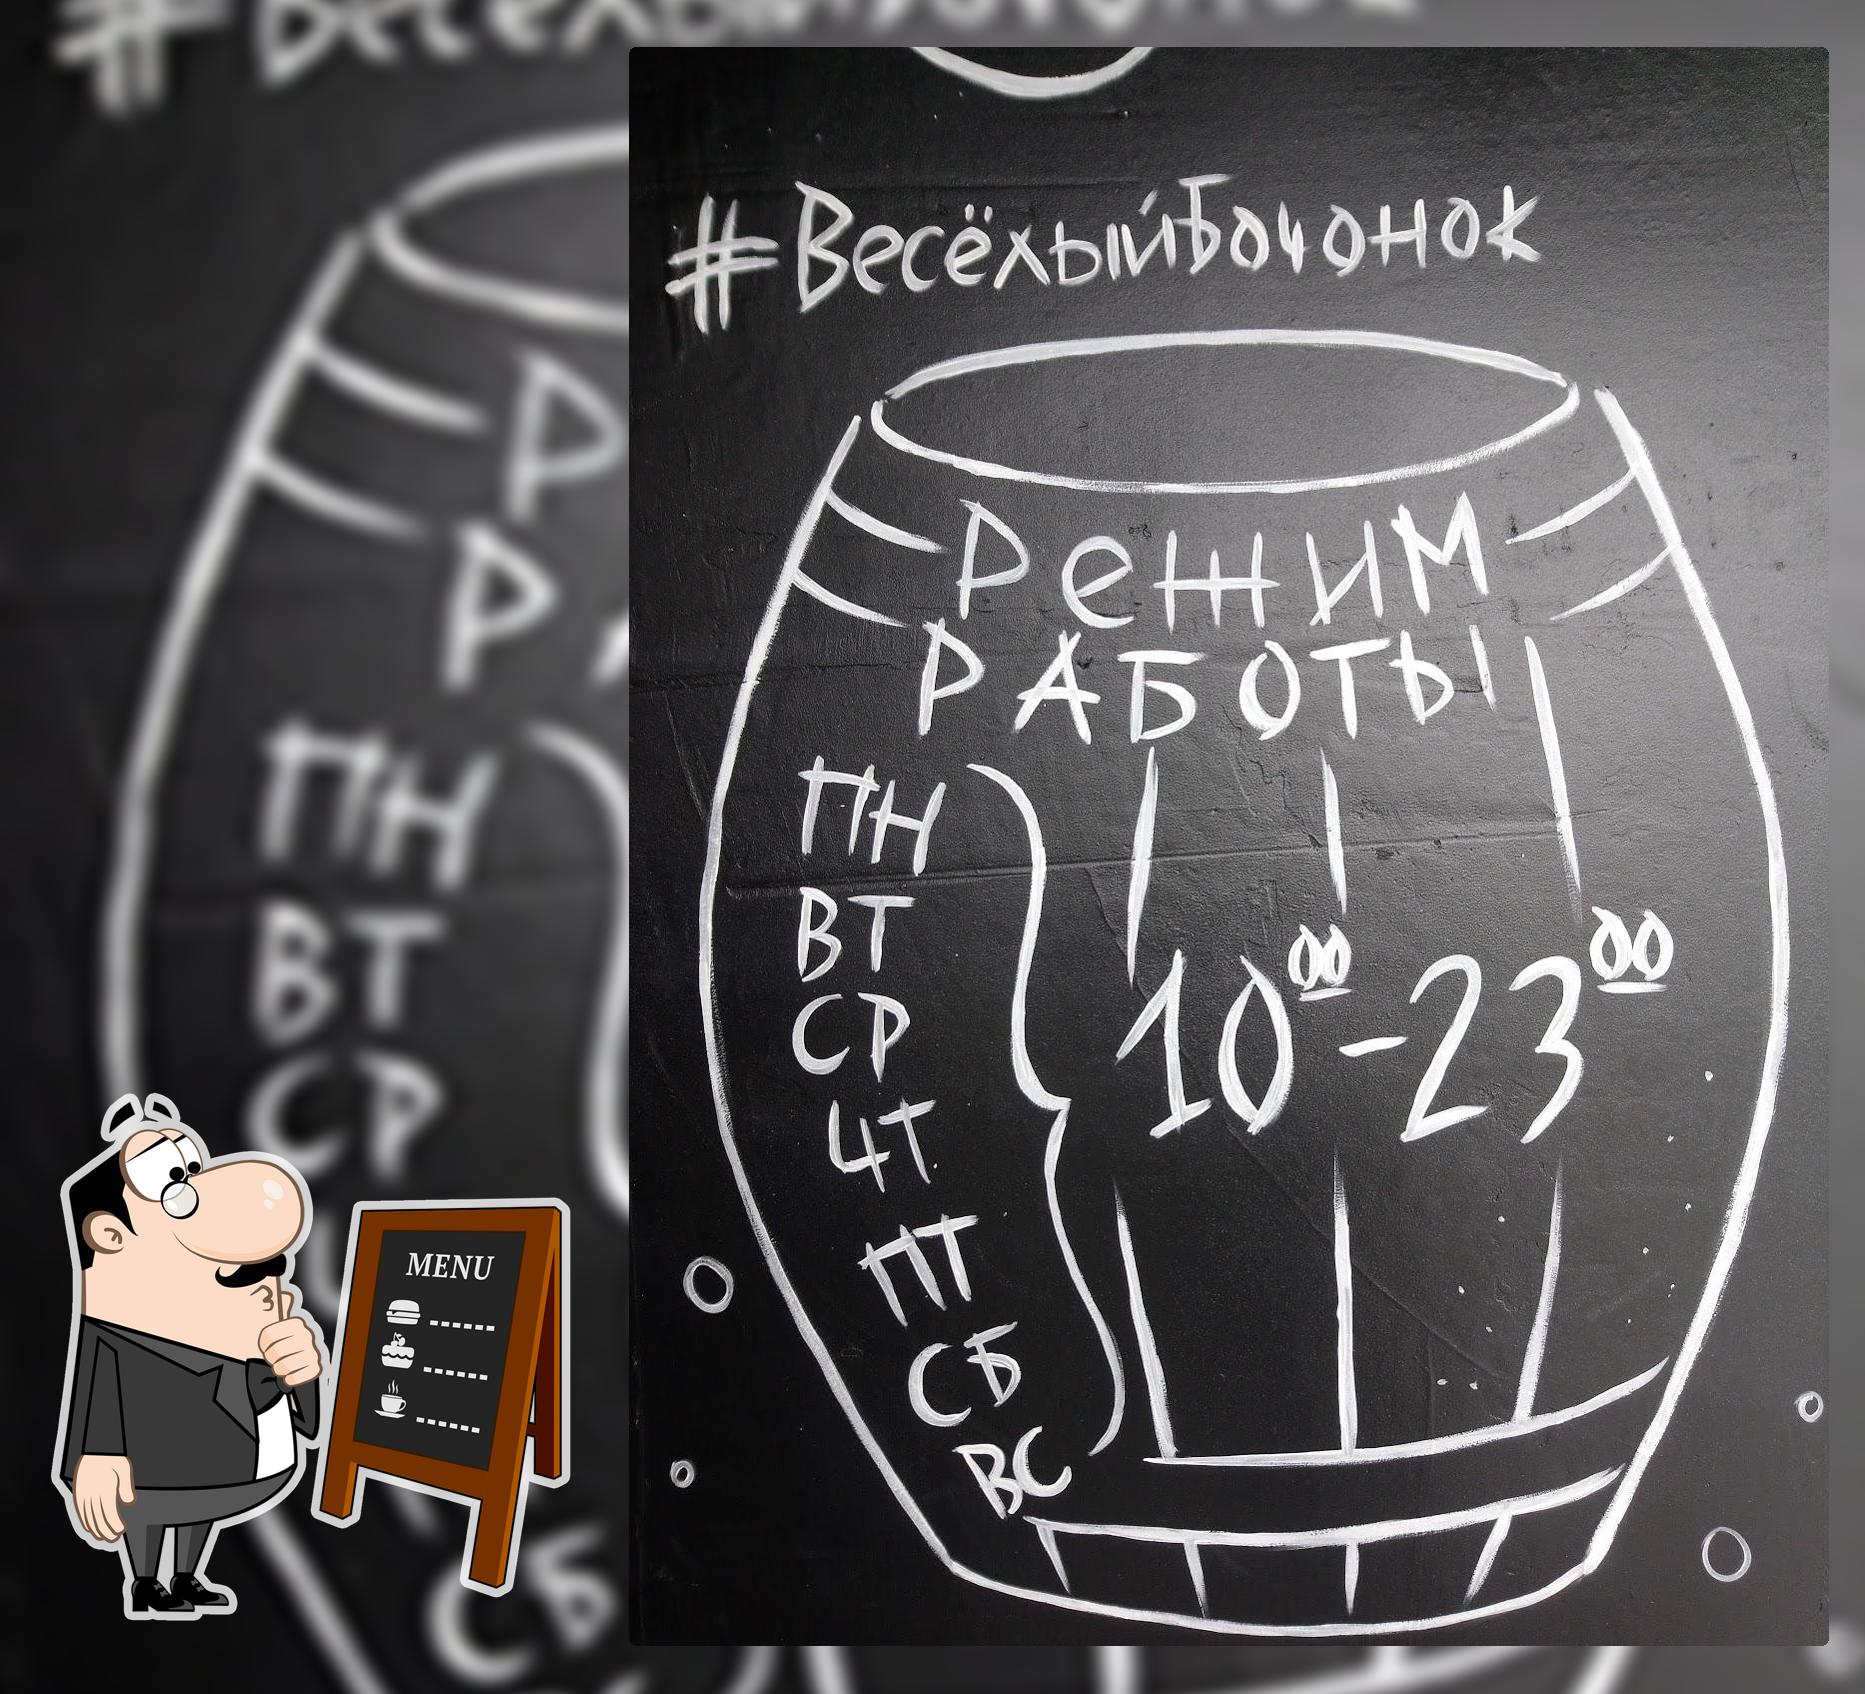 #ВесёлыйБочонок
РЕЖИМ
РАБОТЫ
ПН
ВТ
СР
ЧТ
ПТ
СБ
ВС
10⁰⁰-23⁰⁰
MENU